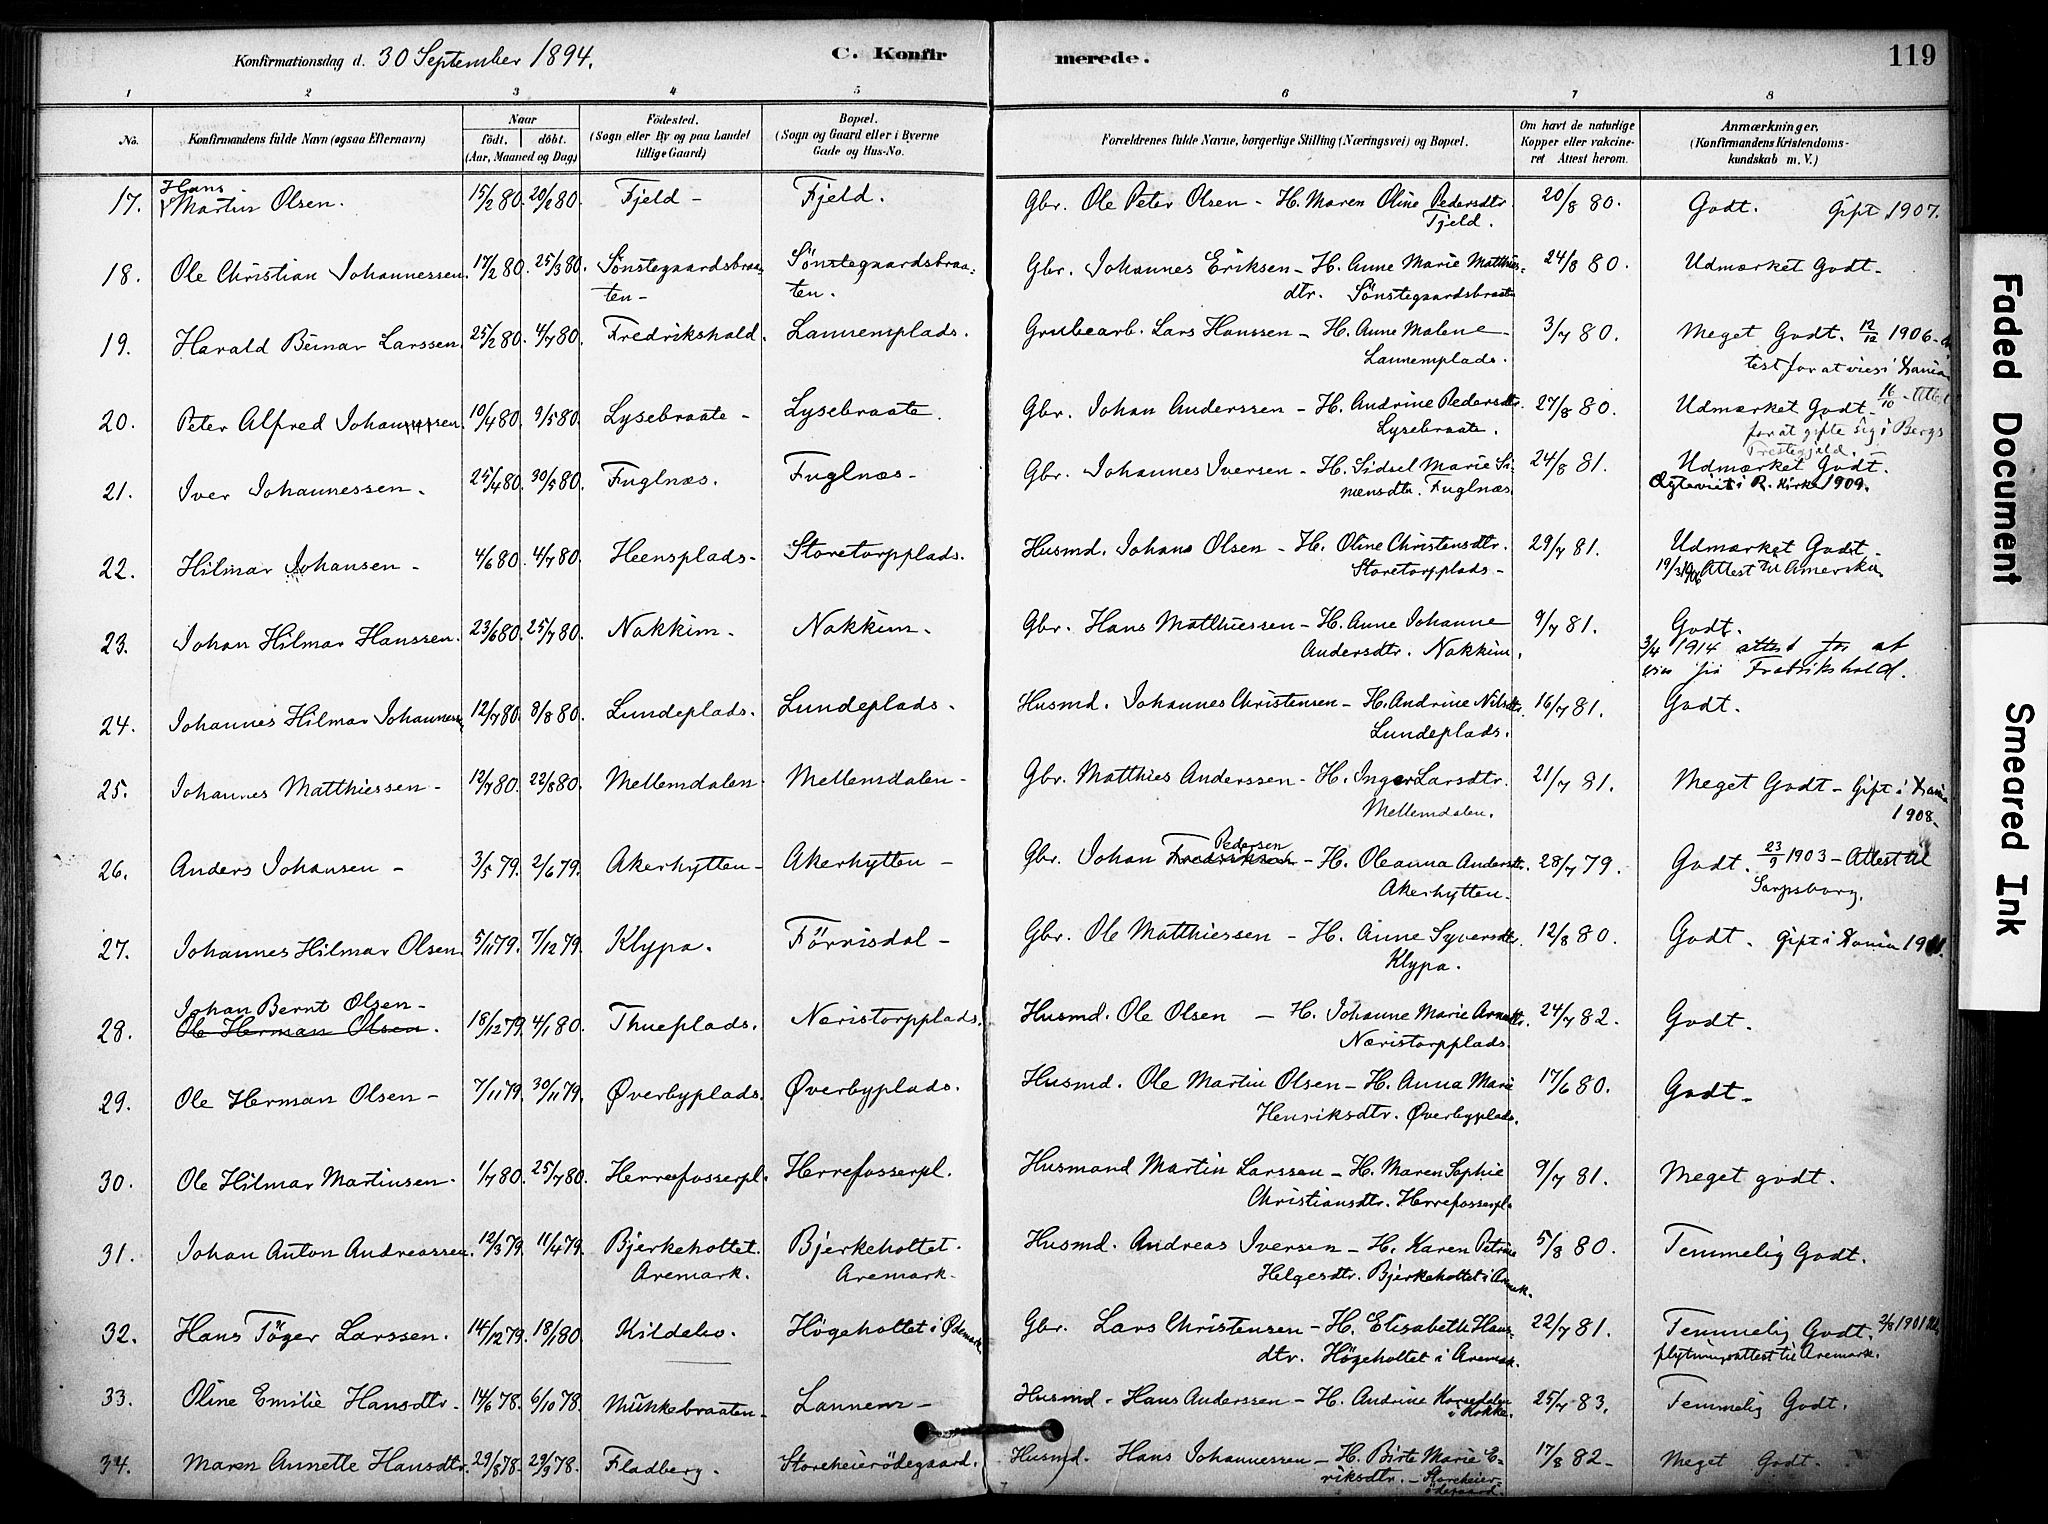 Konfirmationsdag d. 30 September 1894. C. Konfirmerede. 119
1 2 3 4 5 6 7 8
No. Konfirmandens fulde Navn (ogsaa Efternavn) Naar født, døbt. (Aar, Maaned og Dag) Fødested. (Sogn eller By og paa Landet tillige Gaard) Bopæl. (Sogn og Gaard eller i Byerne Gade og Hus-No. Forældrenes fulde Navne, borgerlige Stilling (Næringsvei) og Bopæl. Om havt de naturlige Kopper eller vakcineret Attest herom. Anmærkninger. (Konfirmandens Kristendomskundskab m. V.)
17. Hans Martin Olsen. 15/2 80. 20/2 80. Fjeld - Fjeld. Gbr. Ole Peter Olsen - H. Maren Oline Pedersdtr. Fjeld. 20/8 80. Godt. Gift 1907.
18. Ole Christian Johannessen. 17/2 80. 25/3 80. Sönstegaardsbraaten - Sönstegaardsbraaten. Gbr. Johannes Eriksen - H. Anne Marie Matthiesdtr. Sönstegaardsbraaten 24/8 80. Udmærket Godt -
19. Harald Beinar Larssen. 25/2 80. 4/7 80. Fredrikshald. Lannemplads. Grubearb. Lars Hanssen - H. Anne Malene - Lannemplads. 3/7 80. Meget Godt. 12/12 1906 - Attest for at vies i Xania
20. Peter Alfred Johanssen. 10/4 80. 9/5 80. Lysebraate - Lysebraate. Gbr. Johan Anderssen - H. Andrine Pedersdtr. Lysebraate. 27/8 80. Udmærket Godt - 16/10 - Attest for at gifte sig i Bergs Prestegjeld. -
21. Iver Johannessen. 25/4 80. 30/5 80. Fuglnæs. Fuglnæs - Gbr. Johannes Iversen - H. Sidsel Marie Simensdtr. Fuglnæs. 24/8 81. Udmærket Godt. Ægteviet i R. Kirke 1909.
22. Hilmar Johansen - 4/6 80. 4/7 80. Heensplads - Storetorpplads. Husmd. Johans Olsen - H. Oline Christensdtr. Storetorpplads - 29/7 81. Udmærket Godt - 19/3 1906 Attest til Amerika.
23. Johan Hilmar Hanssen. 23/6 80. 25/7 80. Nakkim. Nakkim. Gbr. Hans Matthiessen - H. Anne Johanne Andersdtr. Nakkim. 9/7 81. Godt. 3/4 1914 attest for at vies fra Fredrikshald.
24. Johannes Hilmar Johannessen 12/7 80. 8/8 80. Lundeplads. Lundeplads. Husmd. Johannes Christensen - H. Andrine Nilsdtr. Lundeplads. 16/7 81. Godt.
25. Johannes Matthiessen - 12/7 80. 22/8 80. Mellemdalen - Mellemdalen - Gbr. Matthies Anderssen - H. Inger Larsdtr. Mellemdalen. 21/7 81. Meget Godt - Gift i Xania 1908.
26. Anders Johansen - 3/5 79. 2/6 79. Akerhytten - Akerhytten - Gbr. Johan Fredriksen Pedersen - H. Oleanna Andersdtr. Akerhytten. 28/7 79. Godt. 23/9 1903 - Attest til Sarpsborg.
27. Johannes Hilmar Olsen 5/11 79. 7/12 79. Klypa. Förrisdal - Gbr. Ole Matthiessen - H. Anne Syversdtr. Klypa. 12/8 80. Godt. Gift i Xania
28. Johan Bernt Olsen - Ole Herman Olsen. 18/12 79. 4/1 80. Thueplads. Næristorpplads. Husmd. Ole Olsen - H. Johanne Marie Næristorpplads. 24/7 82. Godt.
29. Ole Herman Olsen - 7/11 79. 30/11 79. Øverbyplads. Øverbyplads. Husmd. Ole Martin Olsen - H. Anna Marie Henriksdtr. Øverbyplads. 17/6 80. Godt -
30. Ole Hilmar Martinsen. 1/7 80. 25/7 80. Herrefosserpl. Herrefosserpl. Husmand Martin Larssen - H. Maren Sophie Christiansdtr. Herrefosserpl. 9/7 81. Meget godt.
31. Johan Anton Andreassen. 12/3 79. 11/4 79. Bjerkeholtet. Aremark. Bjerkeholtet. Aremark. Husmd. Andreas Iversen - H. Karen Petrine Helgesdtr. Bjerkeholtet i Aremark. 5/8 80. Temmelig Godt.
32. Hans Töger Larssen. 14/12 79. 18/1 80. Kildebo. Högeholtet i Ødemark. Gbr. Lars Christensen - H. Elisabeth Hansdtr. Högeholtet i Aremark. 22/7 81. Temmelig Godt. 1901 flytningsattest til Aremark.
33. Oline Emilie Hansdtr. 14/6 78. 6/10 78. Munkebraaten - Lannem - Husmd. Hans Anderssen - H. Andrine Korsedalen i Rokke. 25/7 83. Temmelig Godt.
34. Maren Annette Hansdtr. 29/8 78. 29/9 78. Fladberg. Storeheierödegaard. Husmd. Hans Johannessen - H. Birte Marie Eriksdtr. - Storeheierödegaard. 17/8 82 - Meget Godt.
Faded Document
Smeared Ink